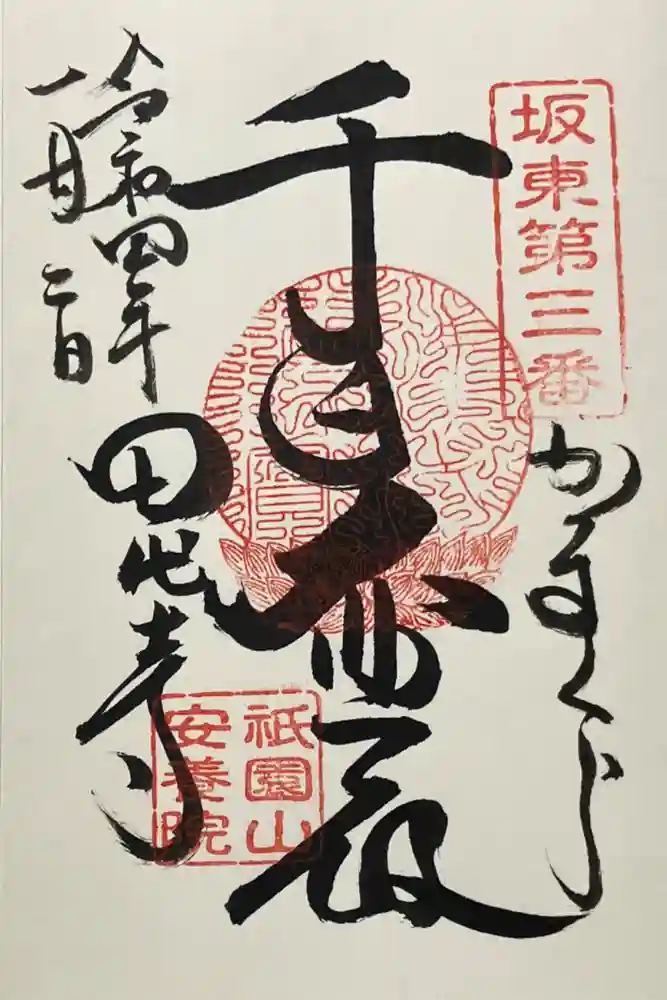 坂東第三番
かまくら
千手大悲殿
令和四年
一月二日
田代寺
祇園山
安養院